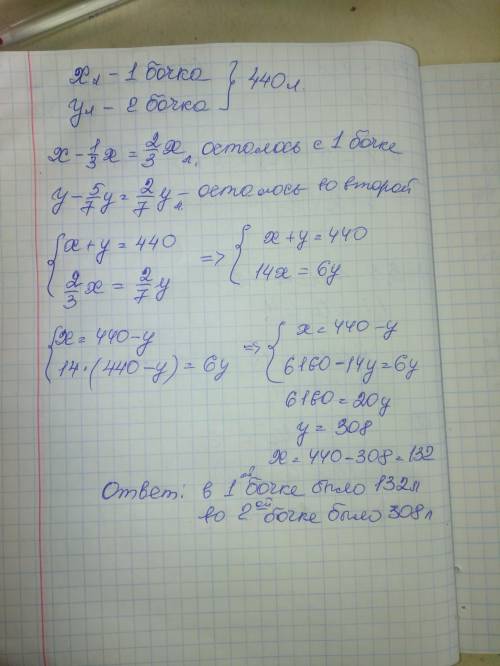 xл - 1 бочка } 440л.
yл - 2 бочка
x - 1/3x = 2/3xл, осталось с 1 бочке
y - 5/7y = 2/7yл - осталось во второй
{ x + y = 440 => { x + y = 440
2/3x = 2/7y 14x = 6y
{ x = 440 - y => { x = 440 - y
14·(440 - y) = 6y 6160 - 14y = 6y
6160 = 20y
y = 308
x = 440 - 308 = 132
Ответ: в 1ой бочке было 132л
во 2ой бочке было 308л